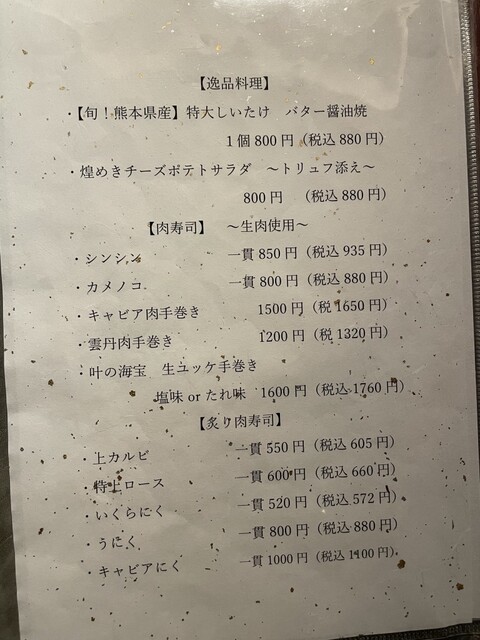 【逸品料理】
・【旬！熊本県産】特大しいたけ　バター醤油焼
１個 800 円（税込 880 円）
・煌めきチーズポテトサラダ　～トリュフ添え～
800 円　（税込 880 円）
【肉寿司】　～生肉使用～
・シンシン　一貫 850 円（税込 935 円）
・カメノコ　一貫 800 円（税込 880 円）
・キャビア肉手巻き　1500 円（税 1650 円）
・雲丹肉手巻き　1200 円（税 1320 円）
・叶の海宝　生ユッケ手巻き
塩味 or たれ味　1600 円（税込 1760 円）
【炙り肉寿司】
・上カルビ　一貫 550 円（税込 605 円）
・特上ロース　一貫 600 円（税込 660 円）
・いくらにく　一貫 520 円（税込 572 円）
・うにく　一貫 800 円（税込 880 円）
・キャビアにく　一貫 1000 円（税込 1100 円）